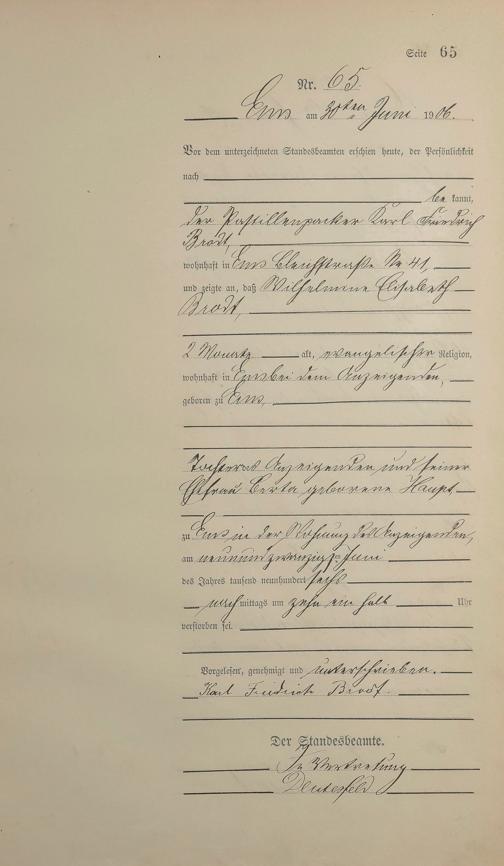 Seite 65
Nr. 65.
Ems am 30ten Juni 1906.
Vor dem unterzeichneten Standesbeamten erschien heute, der Persönlichkeit
nach
be kannt,
der Pastillenpacker Karl Friedrich
Brodt,
wohnhaft in Ems Bleichstraße No 41,
und zeigte an, daß Wilhelmine Elisabeth
Brodt,
2 Monate alt, evangelischer Religion,
wohnhaft in Ems bei dem Anzeigenden,
geboren zu Ems,
Tochter des Anzeigenden und seiner
Ehefrau Berta geborene Haupt
zu Ems in der Wohnung des Anzeigenden,
am neunundzwanzigsten Juni
des Jahres tausend neunhundert sechs
nach mittags um zehn ein halb Uhr
verstorben sei.
Vorgelesen, genehmigt und unterschrieben.
Karl Friedrich Brodt.
Der Standesbeamte.
In Vertretung